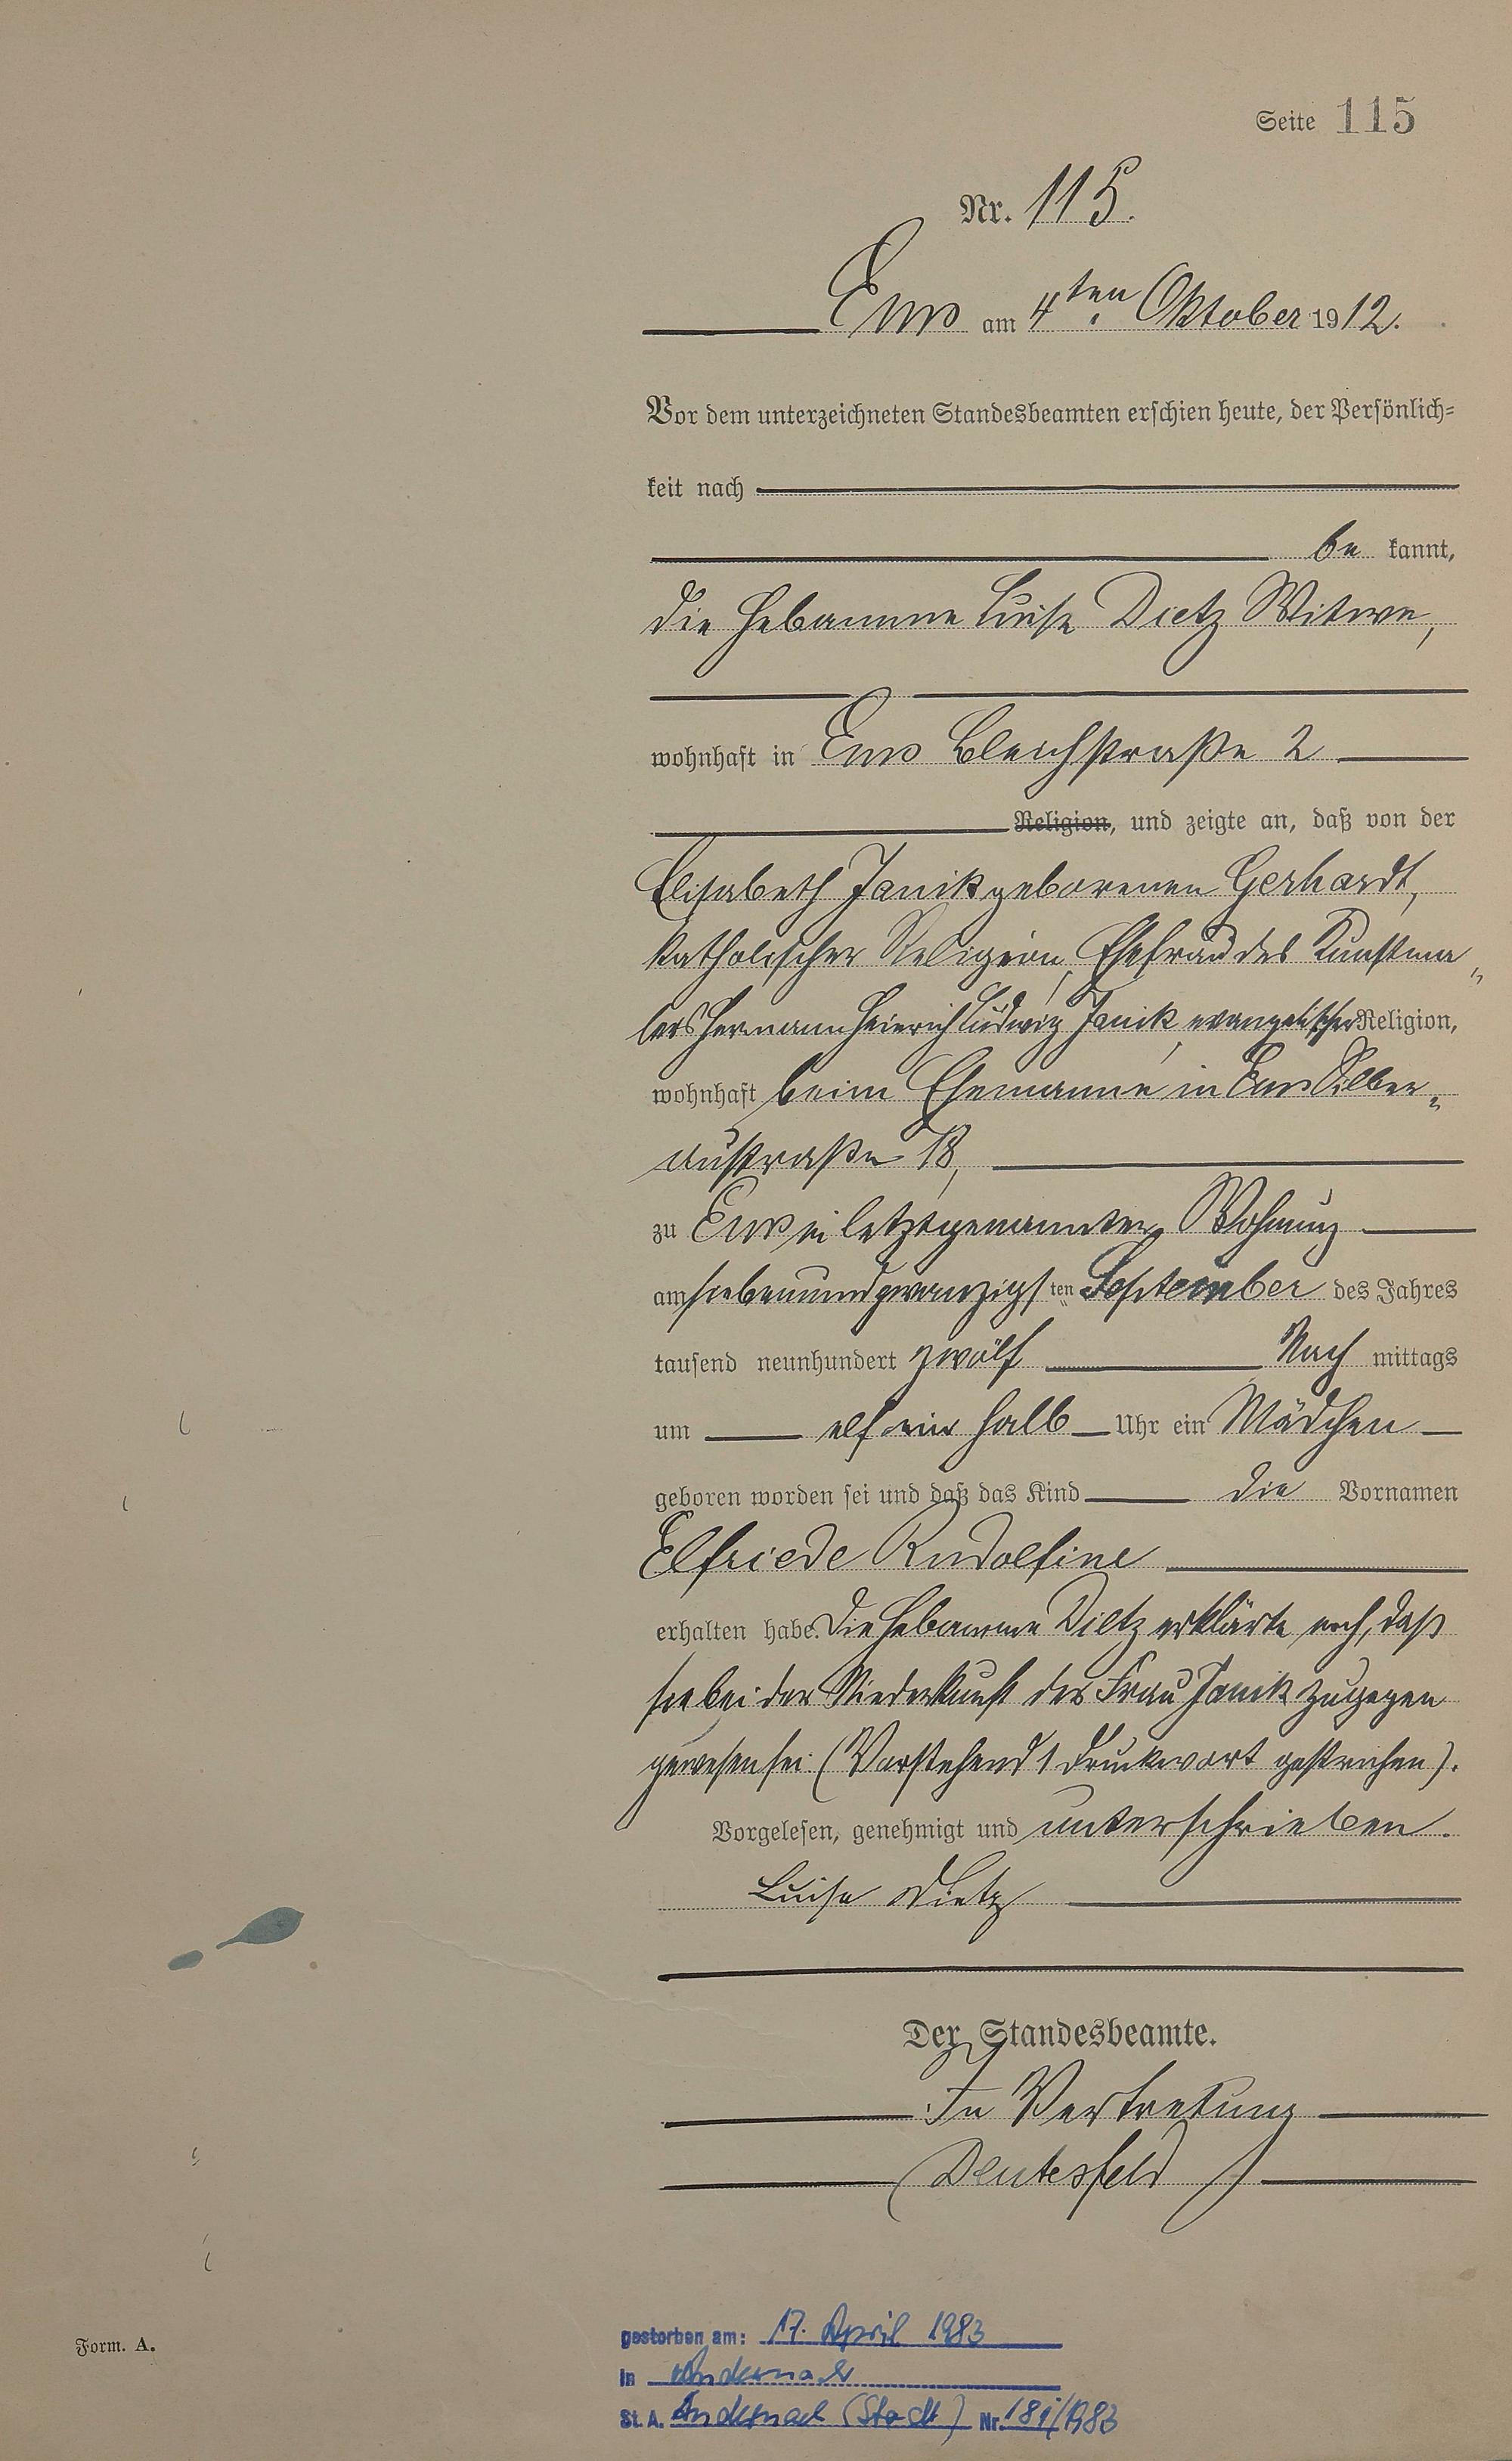 Seite 115
Nr. 115.
Ems am 4ten Oktober 1912.
Vor dem unterzeichneten Standesbeamten erschien heute, der Persönlich-
keit nach
be kannt,
die Hebamme Luise Dietz Witwe,
wohnhaft in Ems Bleichstraße 2
Religion, und zeigte an, daß von der
Elisabeth Janik geborenen Gerhardt,
katholischer Religion, Ehefrau des Kunstma-
lers Hermann Heinrich Ludwig Janik, evangelischer Religion,
wohnhaft beim Ehemanne in Ems Silber-
austraße 18,
zu Ems in letztgenannter Wohnung
am siebenundzwanzigsten September des Jahres
tausend neunhundert zwölf Nach mittags
um elf ein halb Uhr ein Mädchen
geboren worden sei und daß das Kind die Vornamen
Elfriede Rudolfine
erhalten habe. Die Hebamme Dietz erklärte noch, daß
sie bei der Niederkunft der Frau Janik zugegen
gewesen sei. (Vorstehend 1 Druckwort gestrichen).
Vorgelesen, genehmigt und unterschrieben.
Luise Dietz
Der Standesbeamte.
In Vertretung
Deutesfeld
gestorben am: 17. April 1983
in Andernach
St. A. Andernach (Stadt) Nr. 181/1983
Form. A.